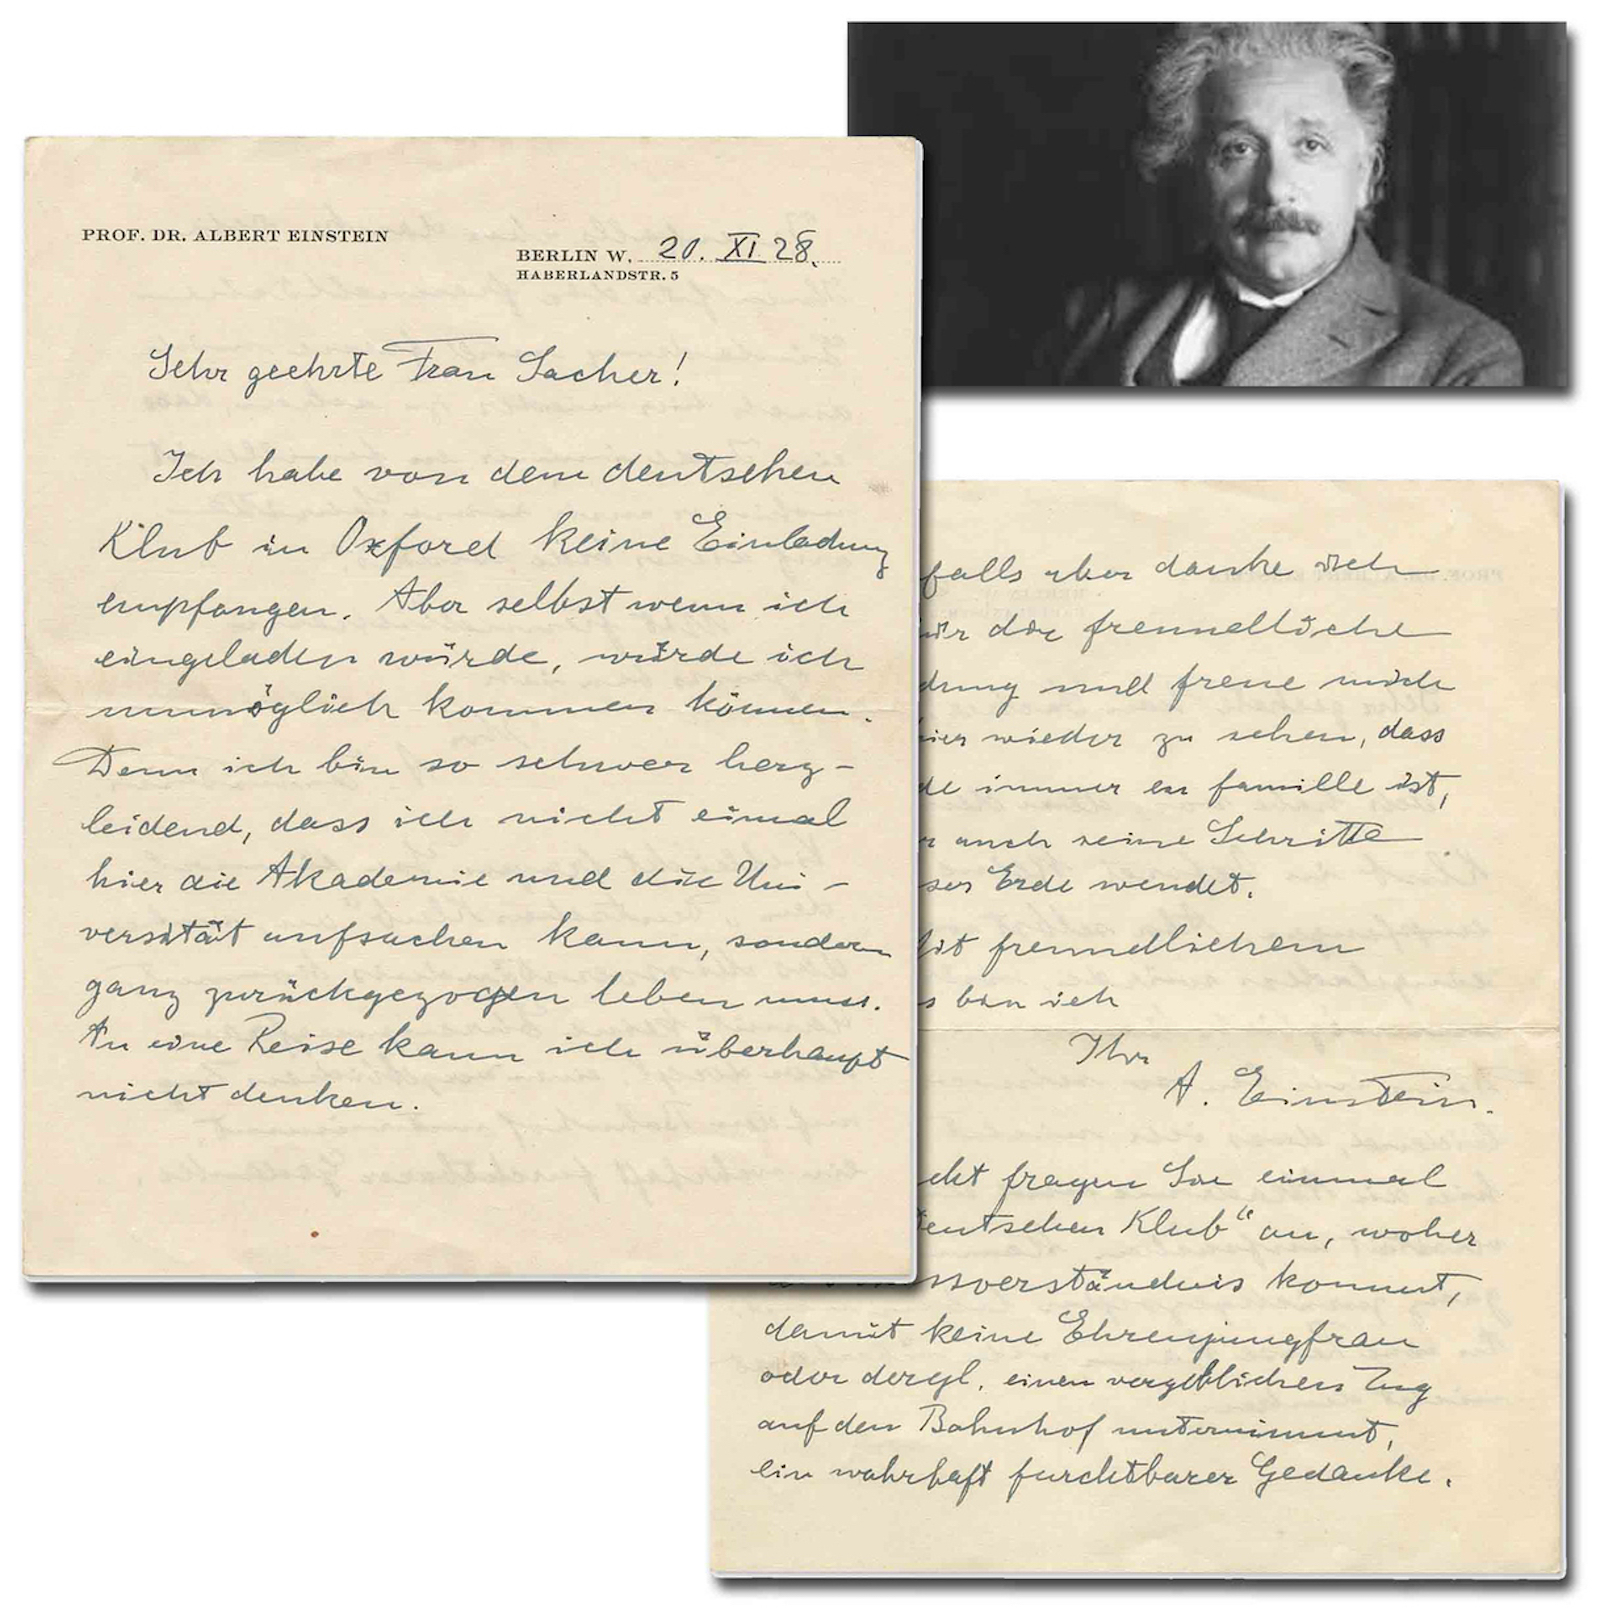 PROF. DR. ALBERT EINSTEIN
BERLIN W. 20. XI 28.
HABERLANDSTR. 5
Sehr geehrte Frau Sacher!
Ich habe von dem deutschen
Klub in Oxford keine Einladung
empfangen. Aber selbst wenn ich
eingeladen würde, würde ich
unmöglich kommen können.
Denn ich bin so schwer herz-
leidend, dass ich nicht eimal
hier die Akademie und die Uni-
versität aufsuchen kann, sondern
ganz zurückgezogen leben muss.
An eine Reise kann ich überhaupt
nicht denken.
falls aber danke ich
die freundliche
dung und freue mich
wieder zu sehen, dass
immer en famille ist,
auch seine Schritte
ser Erde wendet.
it freundlichem
s bin ich
Ihr
A. Einstein.
cht fragen Sie einmal
eutschen Klub" an, woher
ssverständnis kommt,
damit keine Ehrenjungfrau
oder dergl. einen vergeblichen Zug
auf den Bahnhof unternimmt,
ein wahrhaft furchtbarer Gedanke.